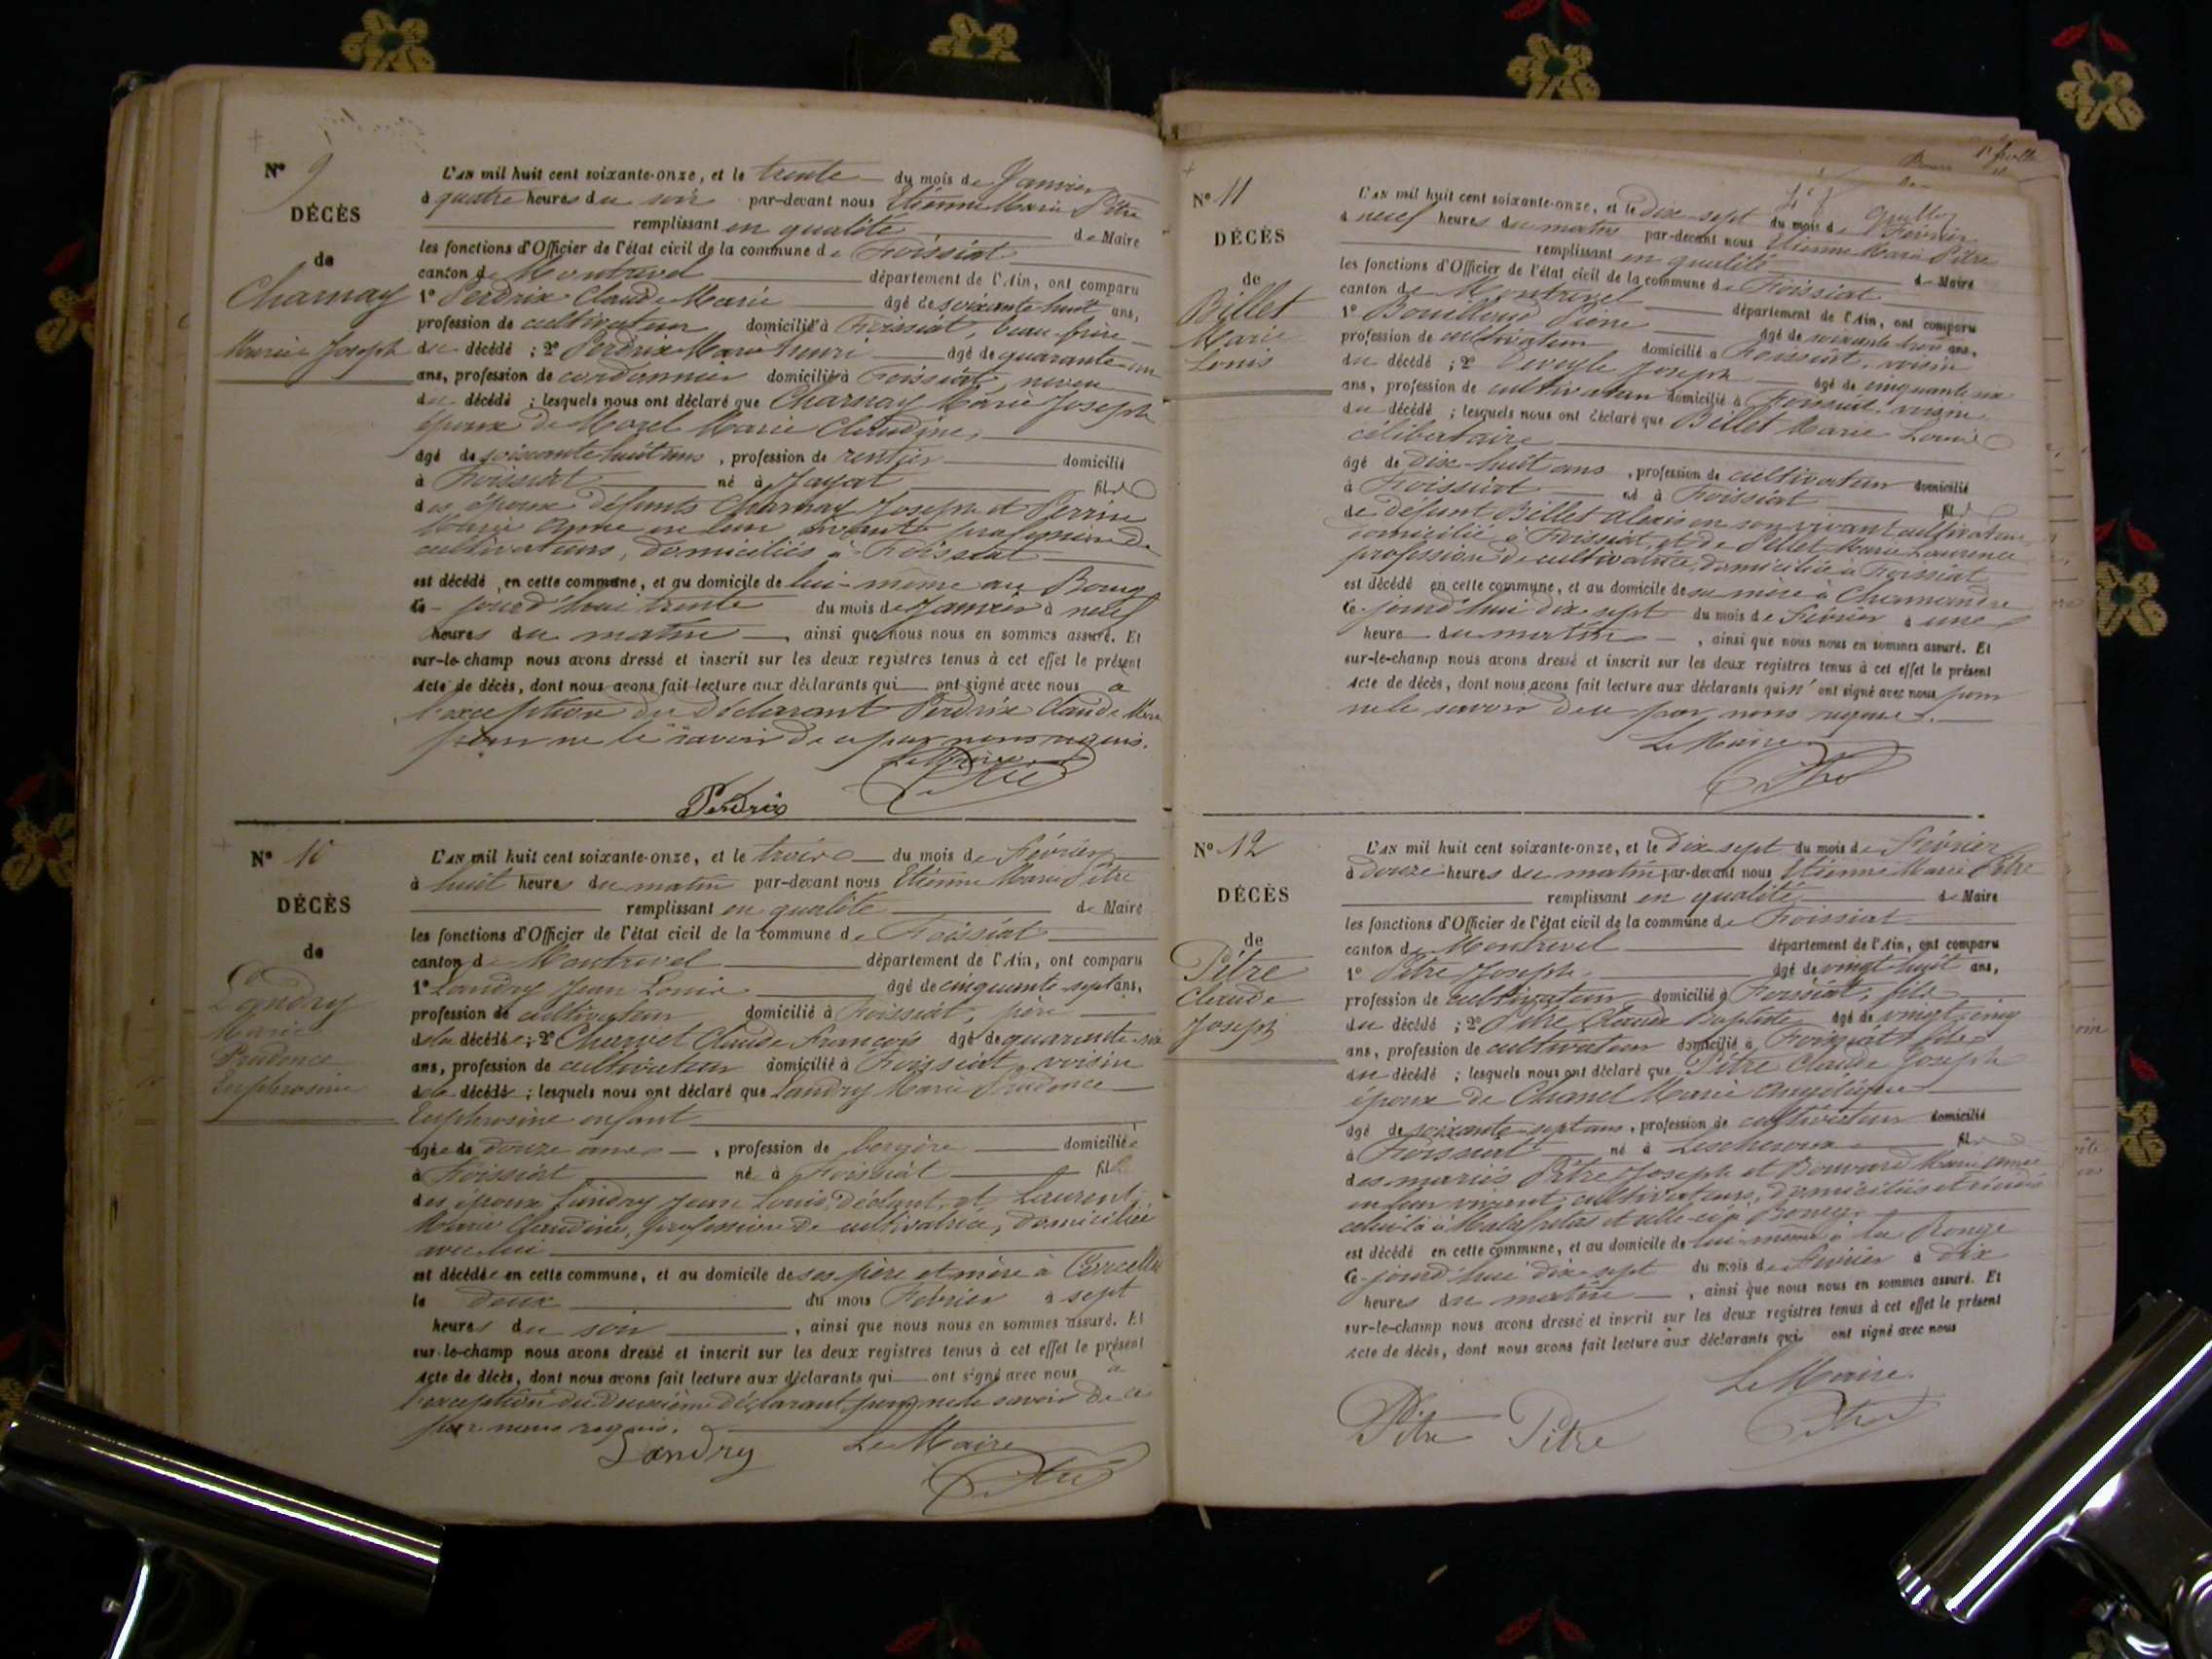 N° 9
DÉCÈS
de
Charnay
Marie Joseph
L'AN mil huit cent soixante-onze, et le trente du mois de Janvier
à quatre heures du soir par-devant nous Etienne Marie Pitre
remplissant en qualité de Maire
les fonctions d'Officier de l'état civil de la commune de Foissiat
canton de Montrevel département de l'Ain, ont comparu
1° Perdrix Claude Marie âgé de soixante huit ans,
profession de cultivateur domicilié à Foissiat, beau-frère
du décédé ; 2° Perdrix Marie Henri âgé de quarante un
ans, profession de cordonnier domicilié à Foissiat, neveu
du décédé ; lesquels nous ont déclaré que Charnay Marie Joseph
époux de Morel Marie Claudine,
âgé de soixante huit ans, profession de rentier domicilié
à Foissiat né à Jayat fils
des époux défunts Charnay Joseph et Perrin
Marie Anne en leur vivant profession de
cultivateurs, domiciliés à Foissiat
est décédé en cette commune, et au domicile de lui-même au Bourg
Ce-jourd'hui trente du mois de Janvier à neuf
heures du matin, ainsi que nous nous en sommes assuré. Et
sur-le-champ nous avons dressé et inscrit sur les deux registres tenus à cet effet le présent
Acte de décès, dont nous avons fait lecture aux déclarants qui ont signé avec nous à
l'exception du déclarant Perdrix Claude Marie
pour ne le savoir de ce par nous requis.
Le Maire
Pitre
Perdrix
N° 10
DÉCÈS
de
Landry
Marie
Prudence
Euphrosine
L'AN mil huit cent soixante-onze, et le trois du mois de Février
à huit heures du matin par-devant nous Etienne Marie Pitre
remplissant en qualité de Maire
les fonctions d'Officier de l'état civil de la commune de Foissiat
canton de Montrevel département de l'Ain, ont comparu
1° Landry Jean Louis âgé de cinquante-sept ans,
profession de cultivateur domicilié à Foissiat, père
de la décédée ; 2° Claude François âgé de quarante-six
ans, profession de cultivateur domicilié à Foissiat, voisin
de la décédé ; lesquels nous ont déclaré que Landry Marie Prudence
Euphrosine enfant
âgée de douze ans, profession de bergère domiciliée
à Foissiat né à Foissiat fille
des époux Landry Jean Louis, déclarant, et Laurent
Marie Claudine, profession de cultivatrice, domiciliée
avec lui
est décédée en cette commune, et au domicile de ses père et mère à Cercelles
le deux du mois Février à sept
heures du soir, ainsi que nous nous en sommes assuré. Et
sur-le-champ nous avons dressé et inscrit sur les deux registres tenus à cet effet le présent
Acte de décès, dont nous avons fait lecture aux déclarants qui ont signé avec nous à
l'exception du deuxième déclarant pour ne le savoir de ce
par nous requis.
Landry
Le Maire
Pitre
N° 11
DÉCÈS
de
Billet
Marie
Louis
L'AN mil huit cent soixante-onze, et le dix-sept du mois de Février
à neuf heures du matin par-devant nous Etienne Marie Pitre
remplissant en qualité de Maire
les fonctions d'Officier de l'état civil de la commune de Foissiat
canton de Montrevel département de l'Ain, ont comparu
1° Bouilloud Pierre âgé de soixante trois ans,
profession de cultivateur domicilié à Foissiat, voisin
du décédé ; 2° Deveyle Joseph âgé de cinquante six
ans, profession de cultivateur domicilié à Foissiat voisin
du décédé ; lesquels nous ont déclaré que Billet Marie Louis
célibataire
âgé de dix-huit ans, profession de cultivateur domicilié
à Foissiat né à Foissiat fils
de défunt Billet Alexis en son vivant cultivateur
domicilié à Foissiat, et de Pellet Marie Laurence
profession de cultivatrice, domiciliée à Foissiat
est décédé en cette commune, et au domicile de sa mère à Chamandre
Ce-jourd'hui dix-sept du mois de Février à une
heure du matin, ainsi que nous nous en sommes assuré. Et
sur-le-champ nous avons dressé et inscrit sur les deux registres tenus à cet effet le présent
Acte de décès, dont nous avons fait lecture aux déclarants qui n'ont signé avec nous pour
ne le savoir de ce par nous requis.
Le Maire
Pitre
N° 12
DÉCÈS
de
Pitre
Claude
Joseph
L'AN mil huit cent soixante-onze, et le dix-sept du mois de Février
à douze heures du matin par-devant nous Etienne Marie Pitre
remplissant en qualité de Maire
les fonctions d'Officier de l'état civil de la commune de Foissiat
canton de Montrevel département de l'Ain, ont comparu
1° Pitre Joseph âgé de vingt huit ans,
profession de cultivateur domicilié à Foissiat, fils
du décédé ; 2° Pitre Claude Baptiste âgé de vingt cinq
ans, profession de cultivateur domicilié à Foissiat fils
du décédé ; lesquels nous ont déclaré que Pitre Claude Joseph
époux de Chanel Marie Angélique
âgé de soixante-sept ans, profession de cultivateur domicilié
à Foissiat né à Lescheroux fils
des mariés Pitre Joseph et Bouvard Marie
en leur vivant cultivateurs, domiciliés et
celui-là à Malafretaz et celle-ci à Bourg
est décédé en cette commune, et au domicile de lui-même à la Ronge
Ce-jourd'hui dix-sept du mois de Février à dix
heures du matin, ainsi que nous nous en sommes assuré. Et
sur-le-champ nous avons dressé et inscrit sur les deux registres tenus à cet effet le présent
Acte de décès, dont nous avons fait lecture aux déclarants qui ont signé avec nous
Le Maire
Pitre Pitre Pitre